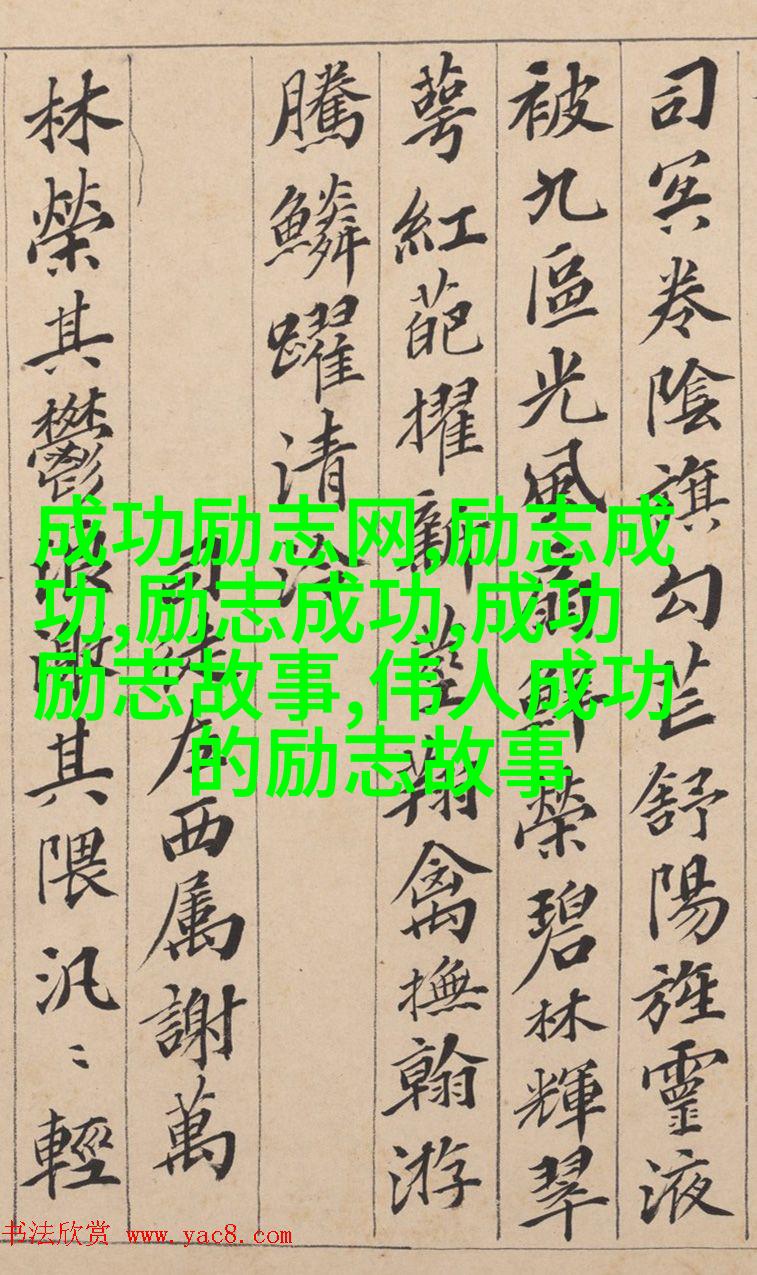 司冥卷陰旗勾芒舒陽旌靈液
被九區光風扇鮮榮碧林輝翠
萼紅葩擢新莖翔禽撫翰游
騰鱗躍清泠
司徒左西属謝萬
林榮其鬱浪激其隈汎〻輕
成功励志网,励志成
功,励志成功,成功
励志故事,伟人成功
的励志故事
书法欣赏 www.yac8.com